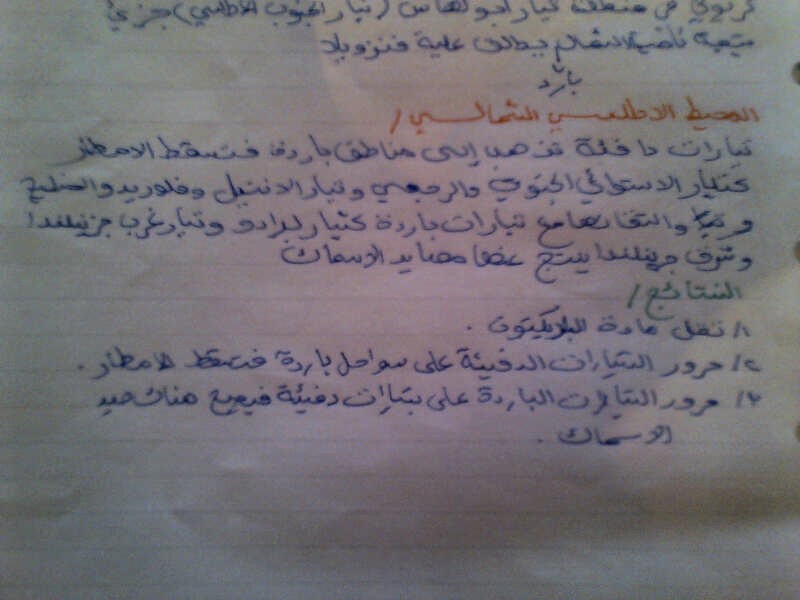 في منطقة تيار اجولهاس (تيار الجنوب الاطلسي) جزئي
متجهة ناحية الشمال يطلق علية فنزويلا
بارد
المحيط الاطلسي الشمالي /
تيارات دافئة تذهب إلى مناطق باردة فتسقط الامطار
كتيار الاستوائي الجنوبي والرجعي وتيار الانتيل وفلوريد والخليج
والتقائها مع تيارات باردة كتيار لبرادو وتيار غرب جرينلندا
وشرق جرينلندا ينتج عنها مصايد الاسماك
النتائج /
١/ نقل مادة البلانكتون .
٢/ مرور التيارات الدفيئة على سواحل باردة فتسقط الامطار .
٣/ مرور التيارات الباردة على تيارات دفيئة فيصبح هناك صيد
الاسماك .